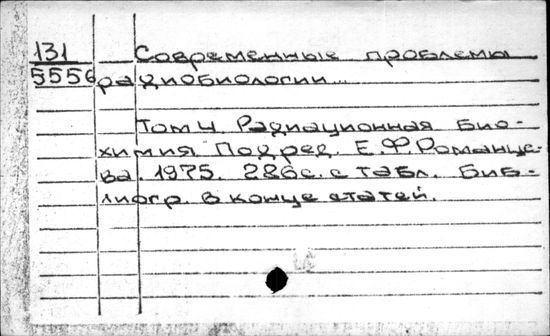 131 Современные проблемы
5556 радиобиологии...
Том 4. Радиационная био-
химия. Под ред. Е.Ф. Романце-
ва. 1975. 286с. с табл. Биб-
лиогр. в конце статей.